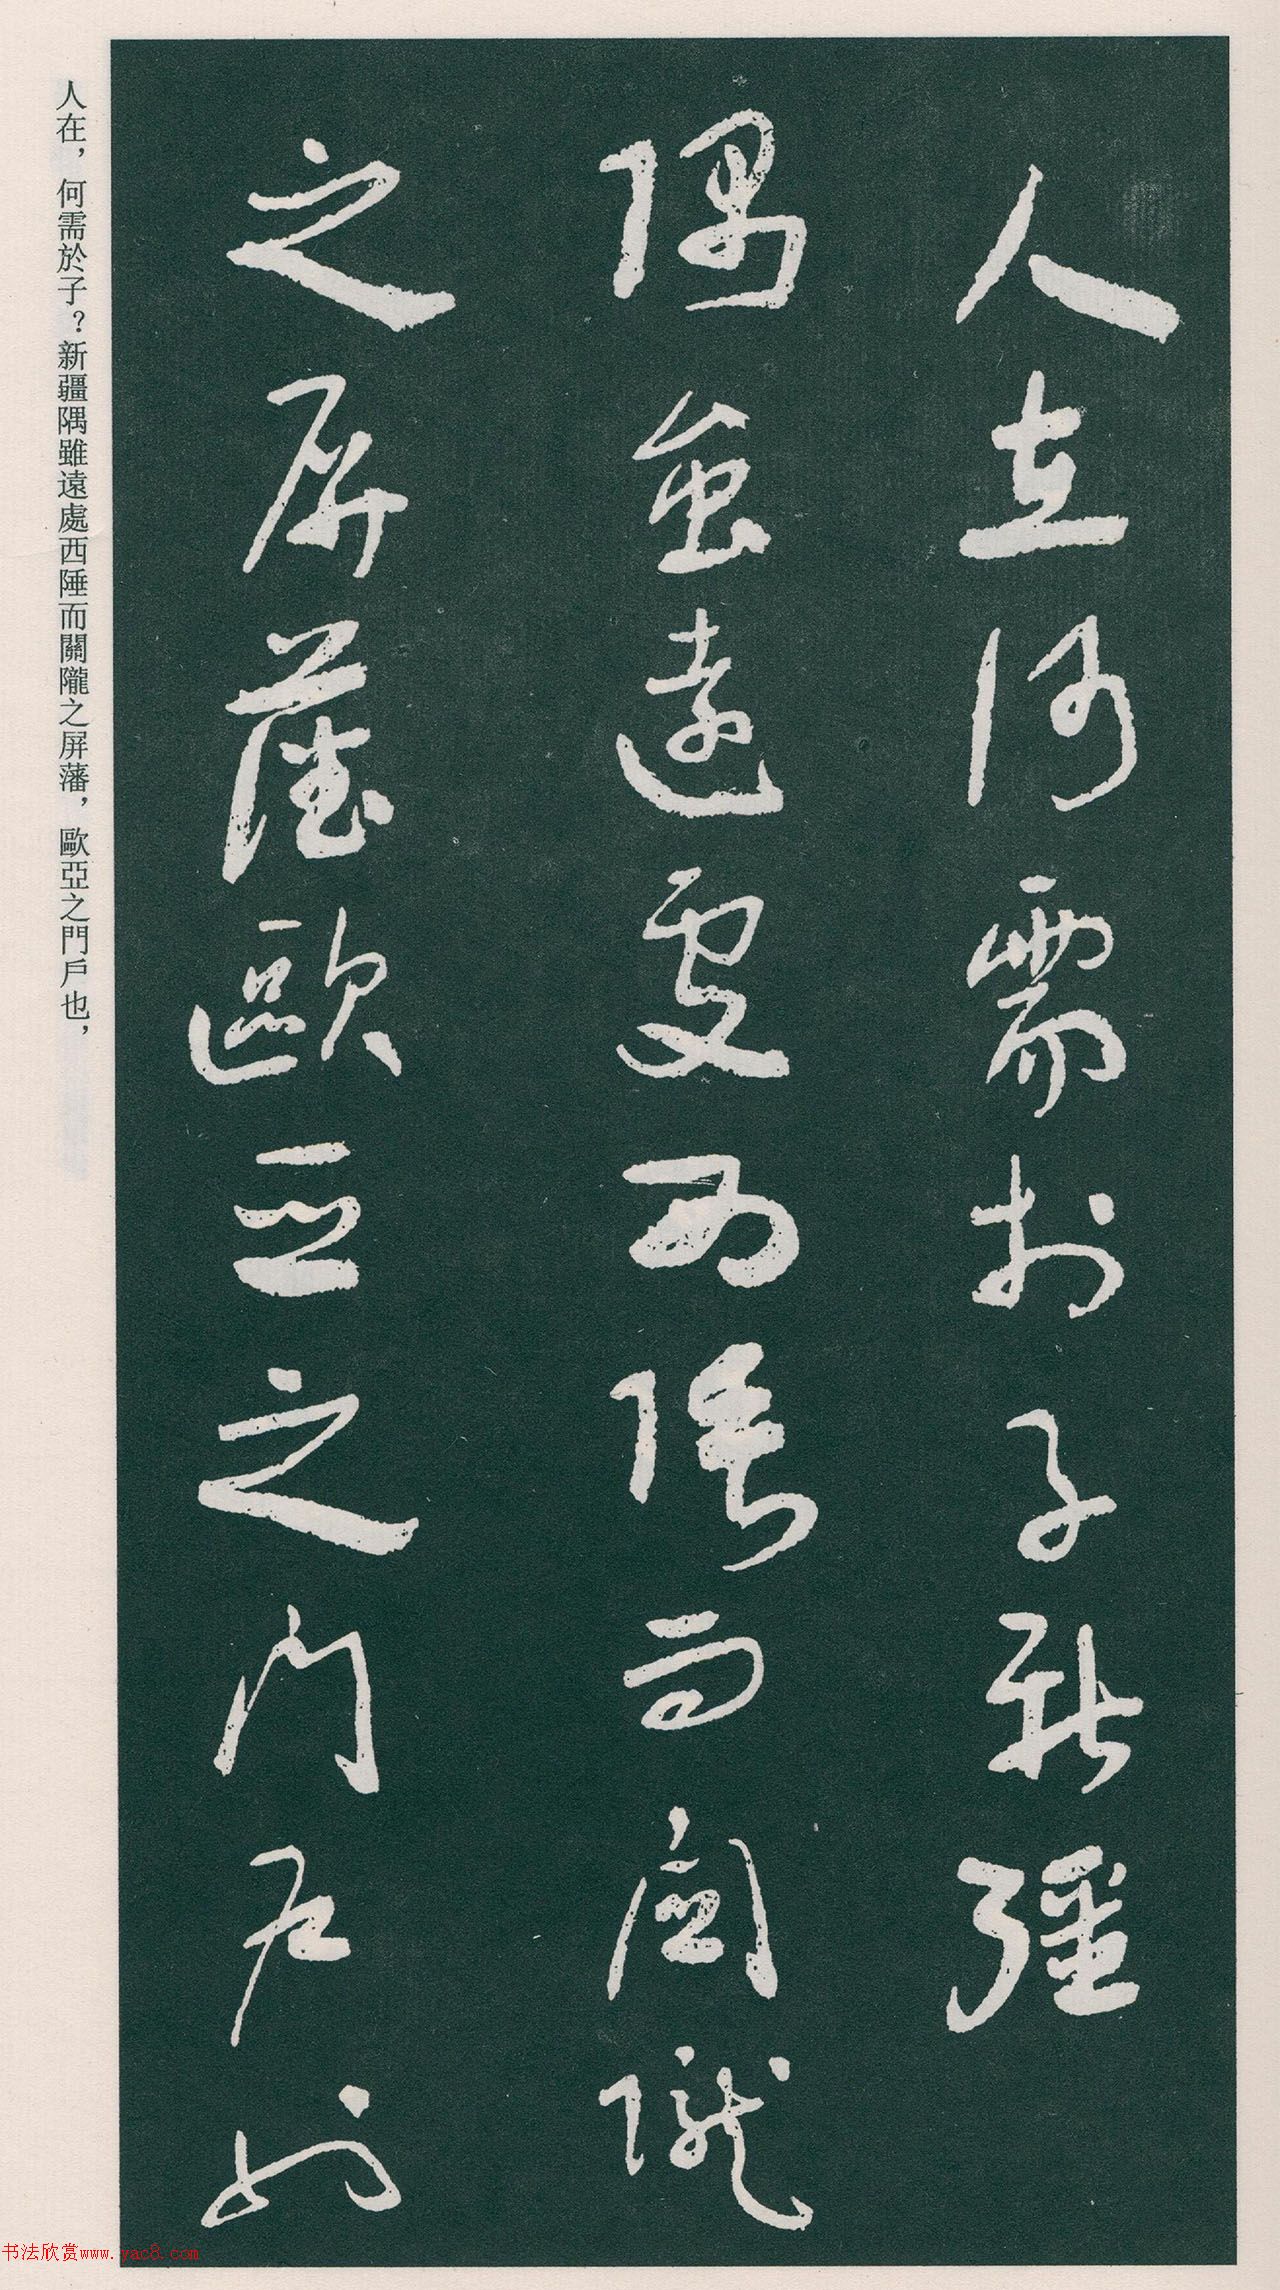 人在何需於子新疆
隅雖遠處西陲而關隴
之屏藩歐亞之門戶也
人在，何需於子？新疆隅雖遠處西陲而關隴之屏藩，歐亞之門戶也，
书法欣赏www.yac8.com